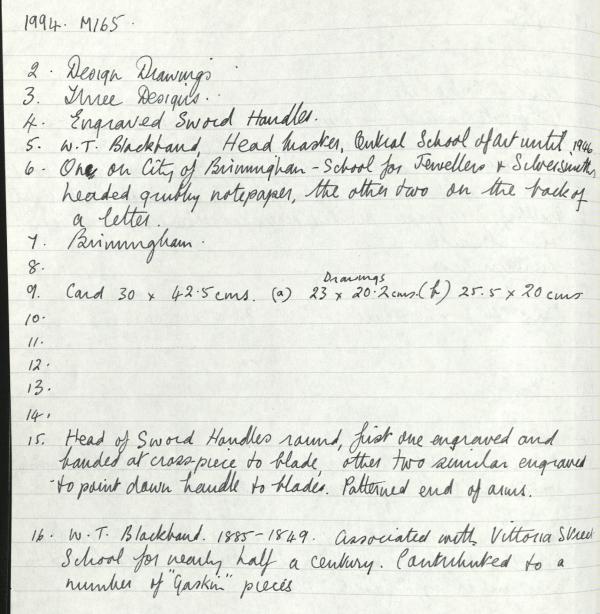 1994. M165.
2. Design Drawings
3. Three Designs.
4. Engraved Sword Handles.
5. W.T. Blackband, Head Master, Central School of Art until 1946
6. One on City of Birmingham - School for Jewellers & Silversmiths
headed grubby notepaper, the other two on the back of
a letter.
7. Birmingham.
8.
Drawings
9. Card 30 x 42.5 cms. (a) 23 x 20.2 cms. (b) 25.5 x 20 cms
10.
11.
12.
13.
14.
15. Head of Sword Handles round, first one engraved and
banded at cross-piece to blade, other two similar engraved
to point down handle to blades. Patterned end of arms.
16. W.T. Blackband. 1885-1849. Associated with Vittoria Street
School for nearly half a century. Contributed to a
number of "Gaskin" pieces